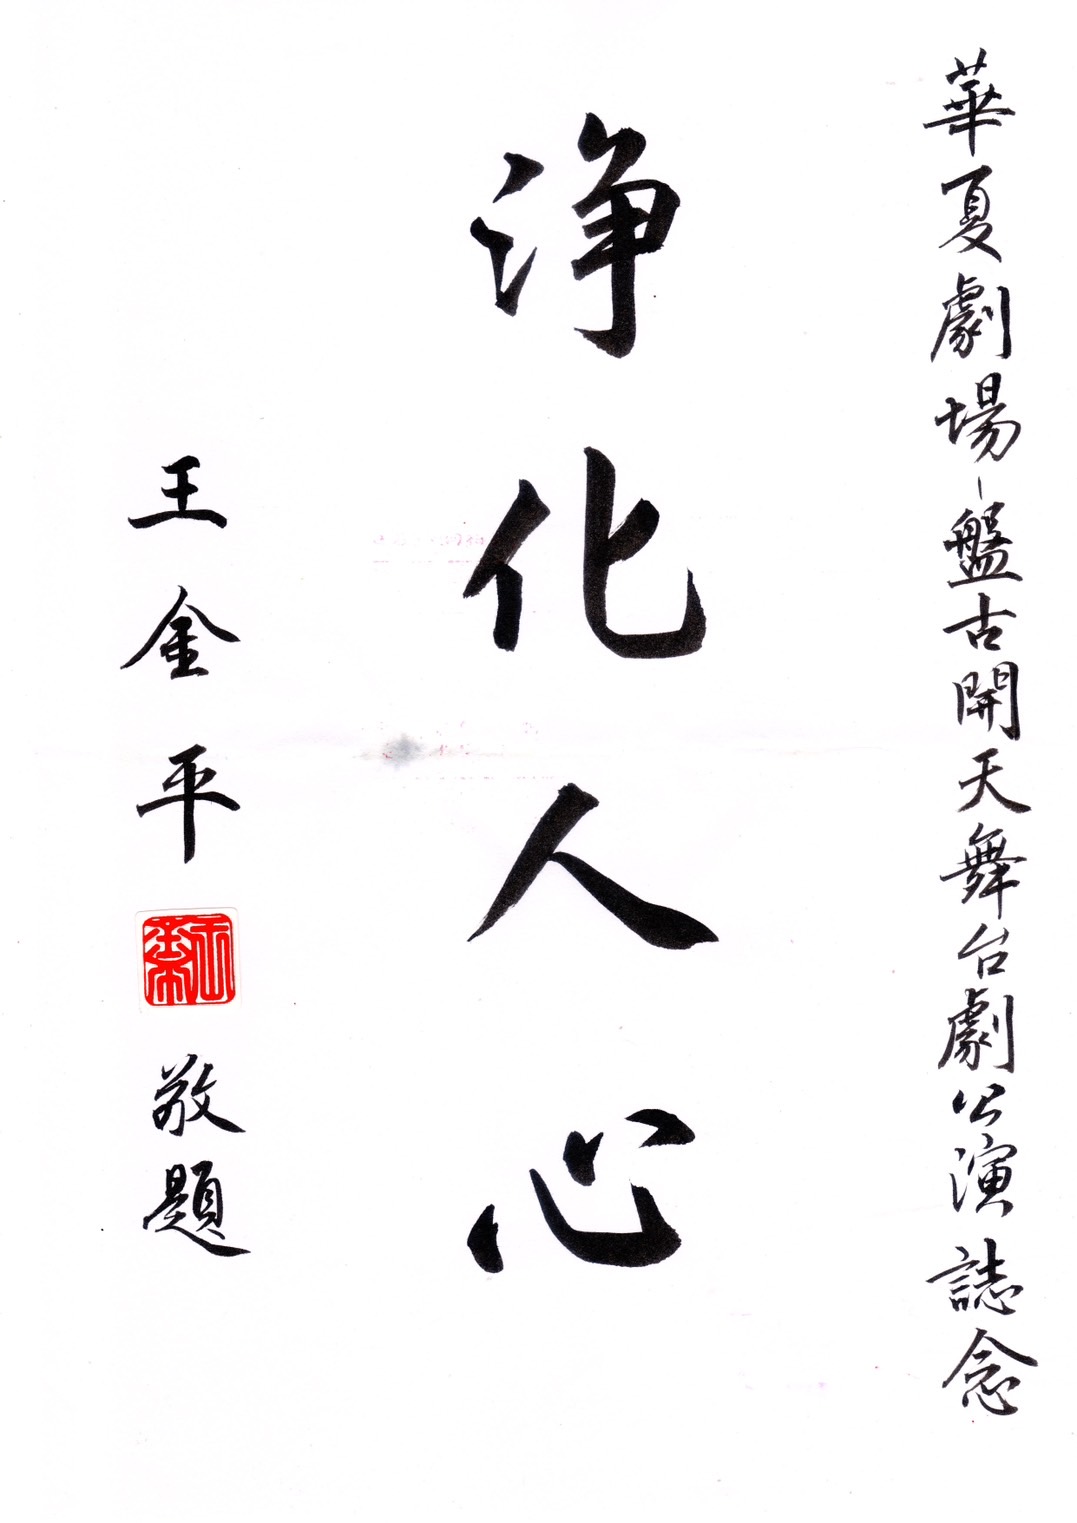 華夏劇場-盤古開天舞台劇公演誌念
淨化人心
王金平
敬題